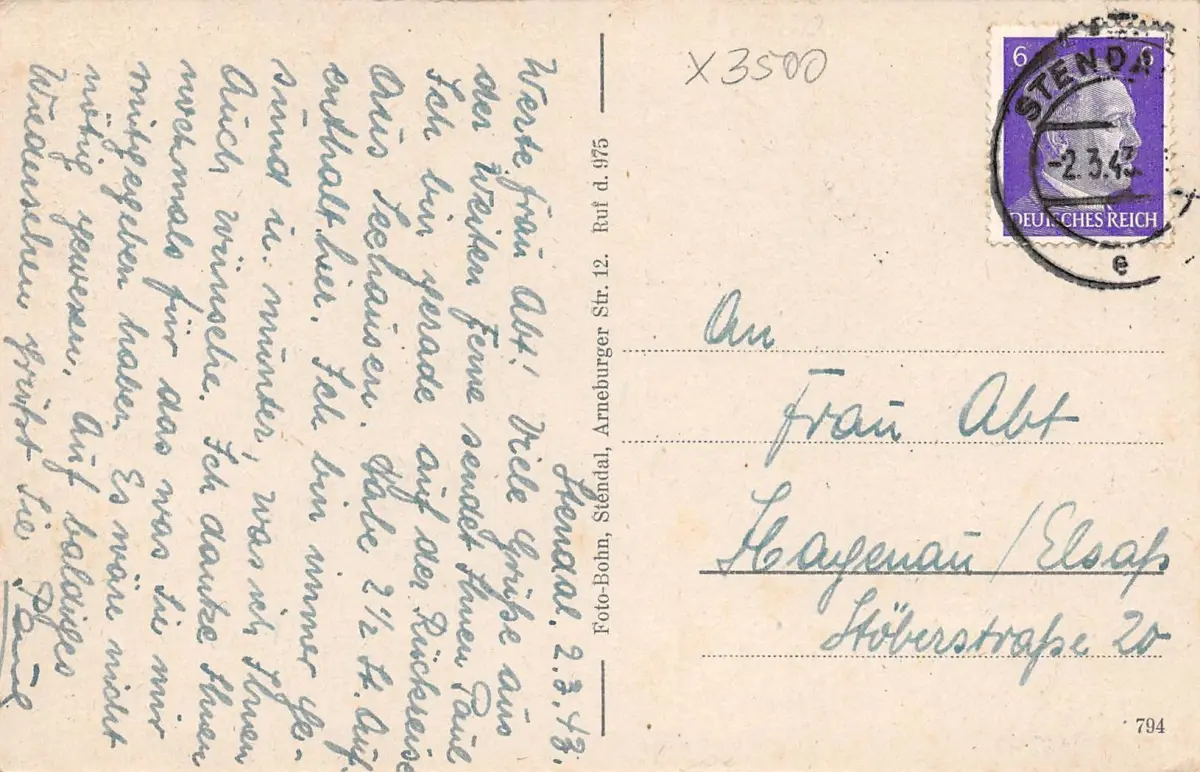 Stendal. 2.3.43.
Werte Frau Abt! Viele Grüße aus
der Weiten Ferne sendet Ihnen Paul
Ich bin gerade auf der Rückreise
Aus Seehausen. Habe 2½ St. Auf-
enthalt hier. Ich bin immer Ge-
sund u. munter, was ich Ihnen
Auch wünsche. Ich danke Ihnen
nochmals für das was Sie mir
mitgegeben haben. Es wäre nicht
nötig gewesen. Auf baldiges
Wiedersehen grüßt Sie
Paul
Foto-Bohn, Stendal, Arneburger Str. 12. Ruf d. 975
X 3500
6 6
DEUTSCHES REICH
STENDAL
-2.3.43
e
An
Frau Abt
Hagenau/Elsaß
Stöberstraße 20
794